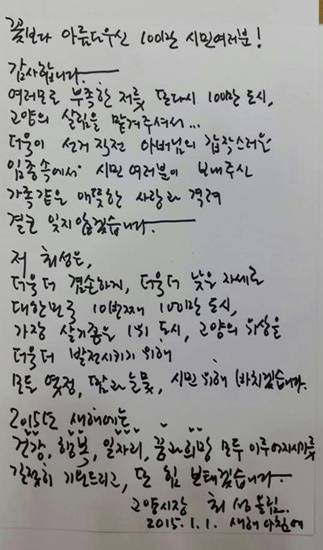 꽃보다 아름다우신 100만 시민여러분!
감사합니다.
여러모로 부족한 저를 또다시 100만 도시,
고양의 살림을 맡겨주셔서...
더욱이 선거 직전 아버님의 갑작스러운
임종속에서 시민 여러분이 보내주신
가족같은 애뜻한 사랑과 격려
결코 잊지 않겠습니다.
저 최성은,
더욱더 겸손하게, 더욱더 낮은 자세로
대한민국 10번째 100만 도시,
가장 살기좋은 1위 도시, 고양의 위상을
더욱더 발전시키기 위해
모든 열정, 땀과 눈물, 시민 위해 바치겠습니다.
2015년 새해에는
건강, 행복, 일자리, 꿈과 희망 모두 이루어지시기를
간절히 기원드리고, 또 힘 보태겠습니다.
고양시장 최성 올림.
2015.1.1. 새해 아침에